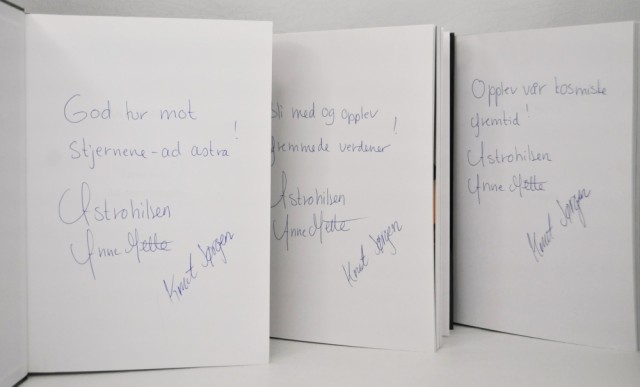 God tur mot
stjernene - ad astra!
Astrohilsen
Anne Mette
Knut Jørgen
Bli med og opplev
fremmede verdener!
Astrohilsen
Anne Mette
Knut Jørgen
Opplev vår kosmiske
fremtid!
Astrohilsen
Anne Mette
Knut Jørgen